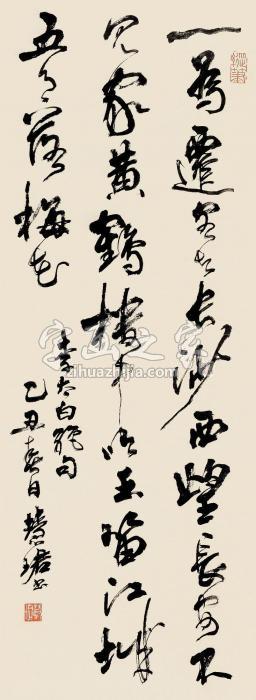 一为迁客去长沙西望长安不
见家黄鹤楼中吹玉笛江城
五月落梅花
李太白绝句
己丑春日慧珺书
字画之家
zihuazhijia.com